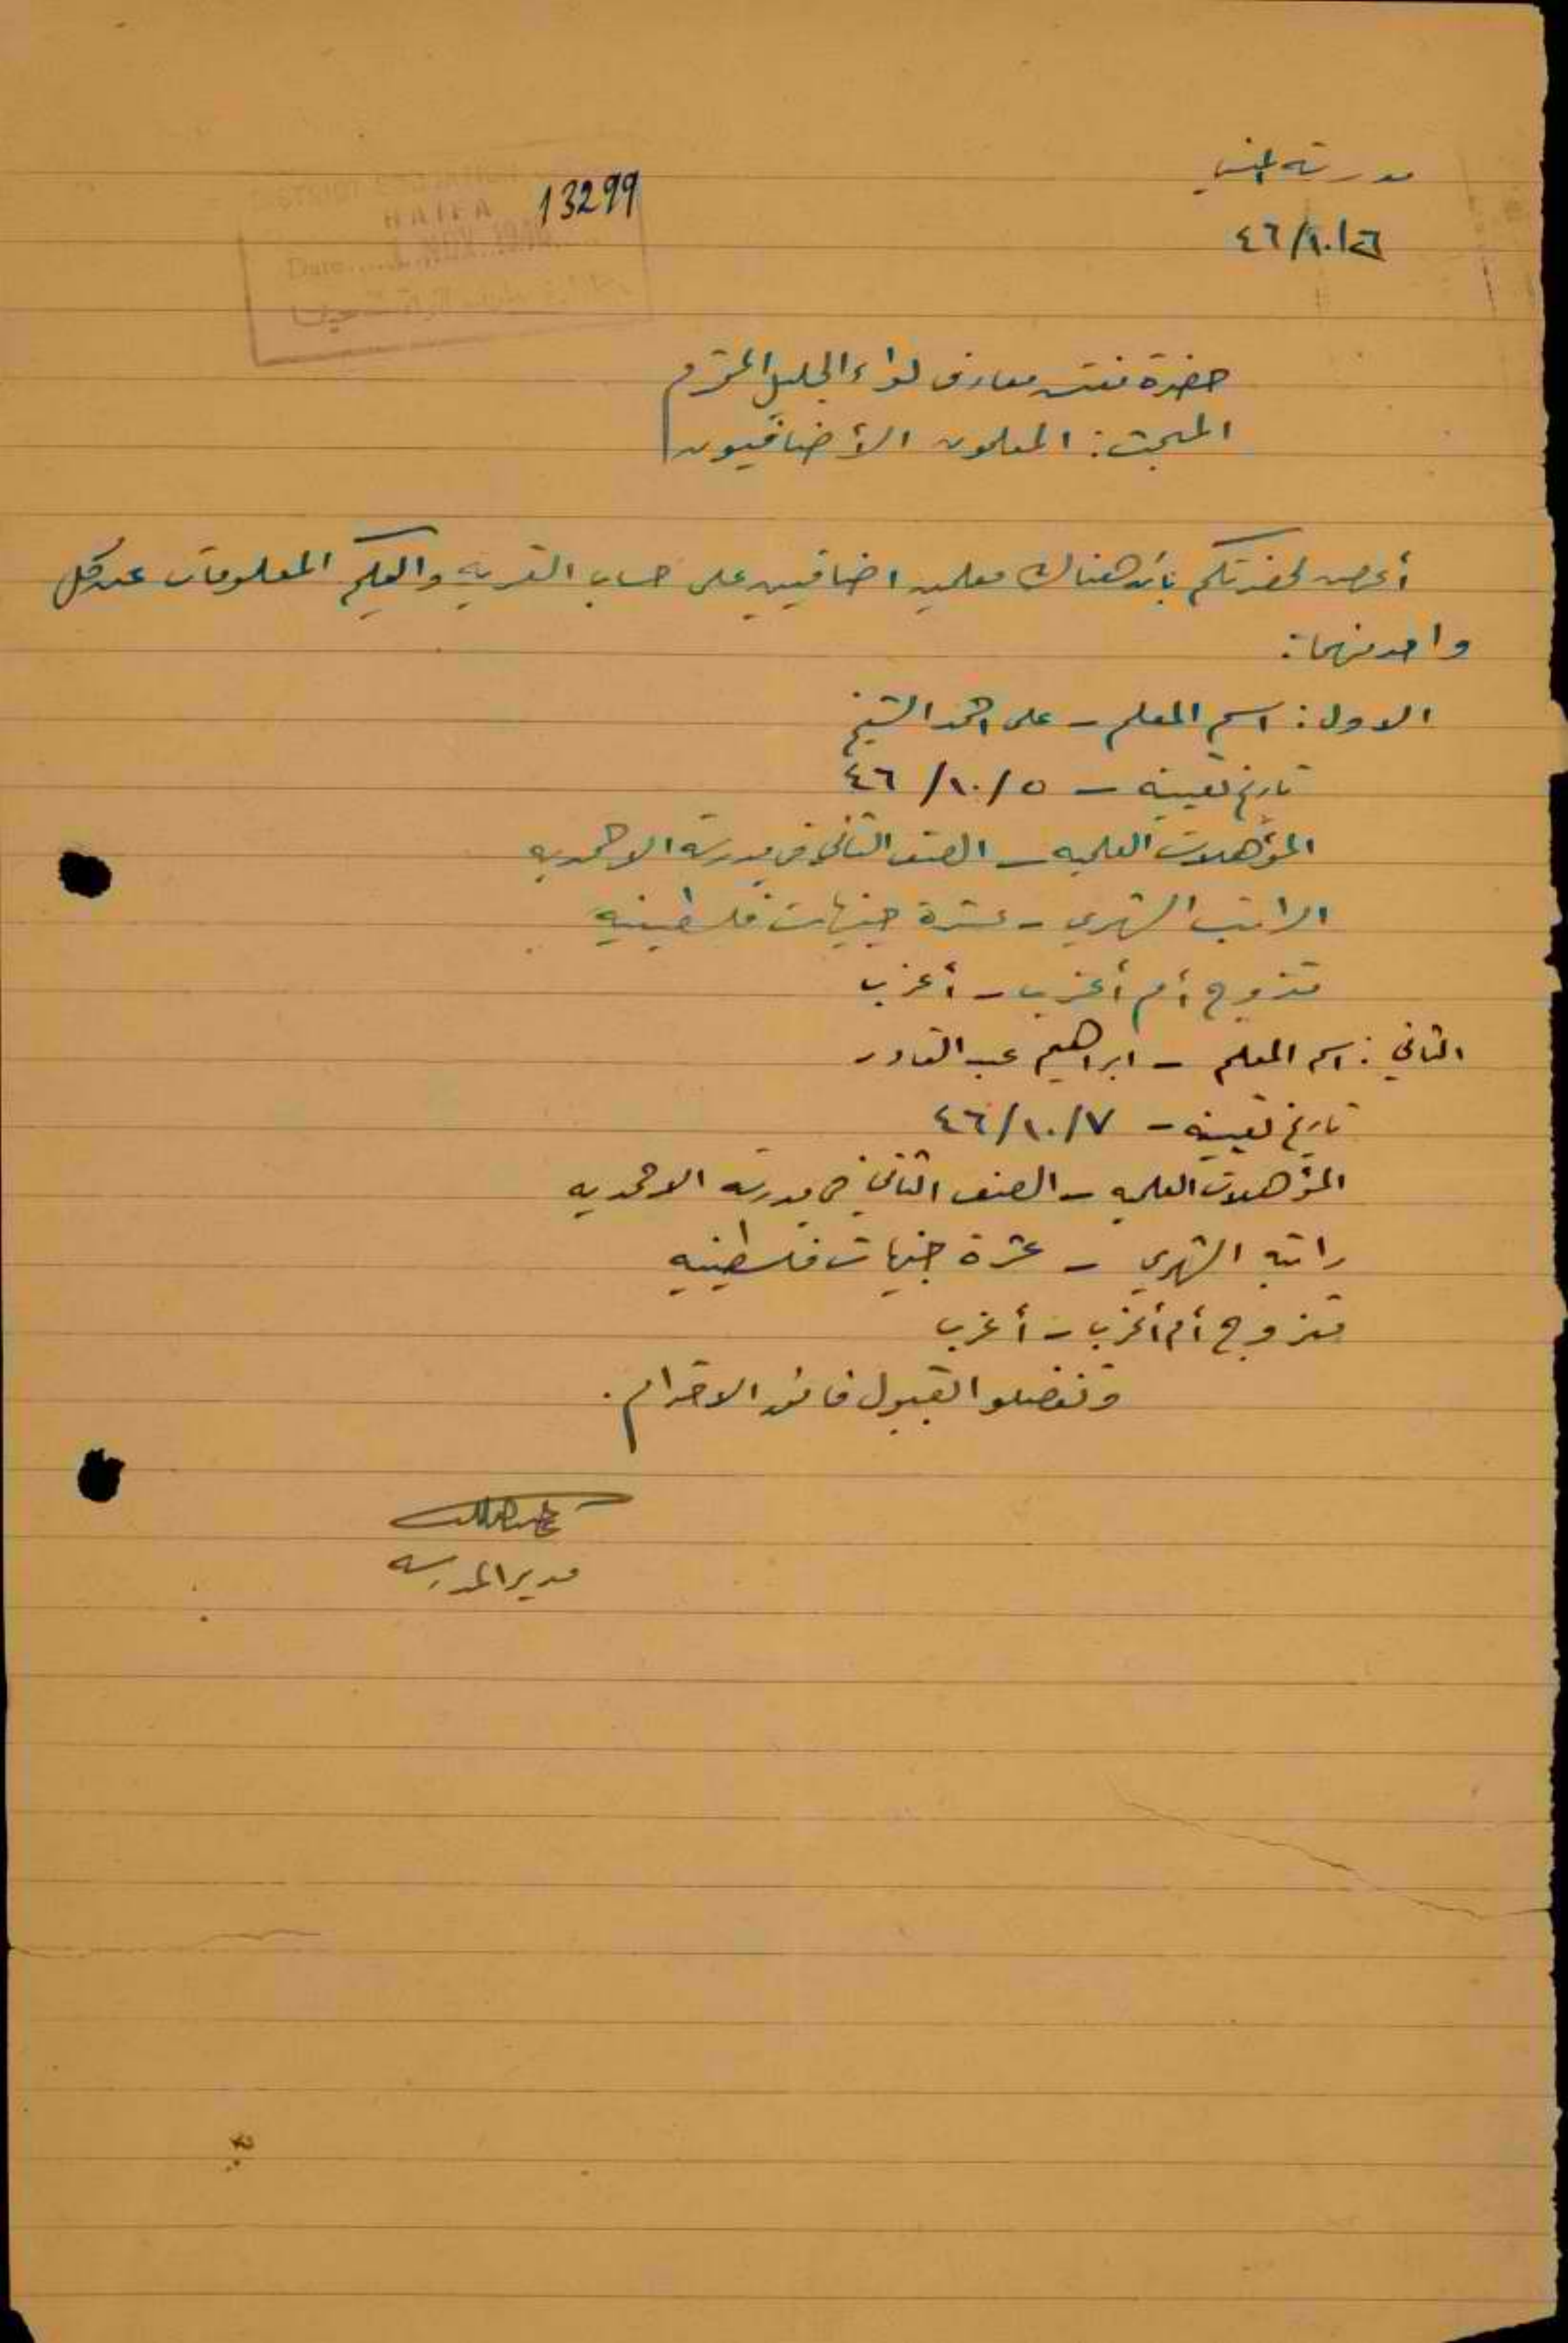 مدرسة المنسي
٤٦/١٠/٢٦
13299
DISTRICT EDUCATION
HAIFA
Date..... NOV 1946
حضرة مفتش معارف لواء الجليل المحترم
المبحث: المعلمون الأضافيون
أعرض لحضرتكم بأن هناك معلمين اضافيين على حساب القريه واليكم المعلومات عن كل
واحد منهما:
الاول: اسم المعلم - على احمد الشيخ
تاريخ تعيينه - ٤٦/١٠/٥
المؤهلات العلميه - الصف الثاني في مدرسة الاحمديه
الراتب الشهري - عشرة جنيهات فلسطينيه
متزوج أم أعزب - أعزب
الثاني: اسم المعلم - ابراهيم عبد القادر
تاريخ تعيينه - ٤٦/١٠/٧
المؤهلات العلميه - الصف الثاني في مدرسة الاحمديه
راتبه الشهري - عشرة جنيهات فلسطينيه
متزوج أم أعزب - أعزب
وتفضلوا بقبول فائق الاحترام.
مدير المدرسه